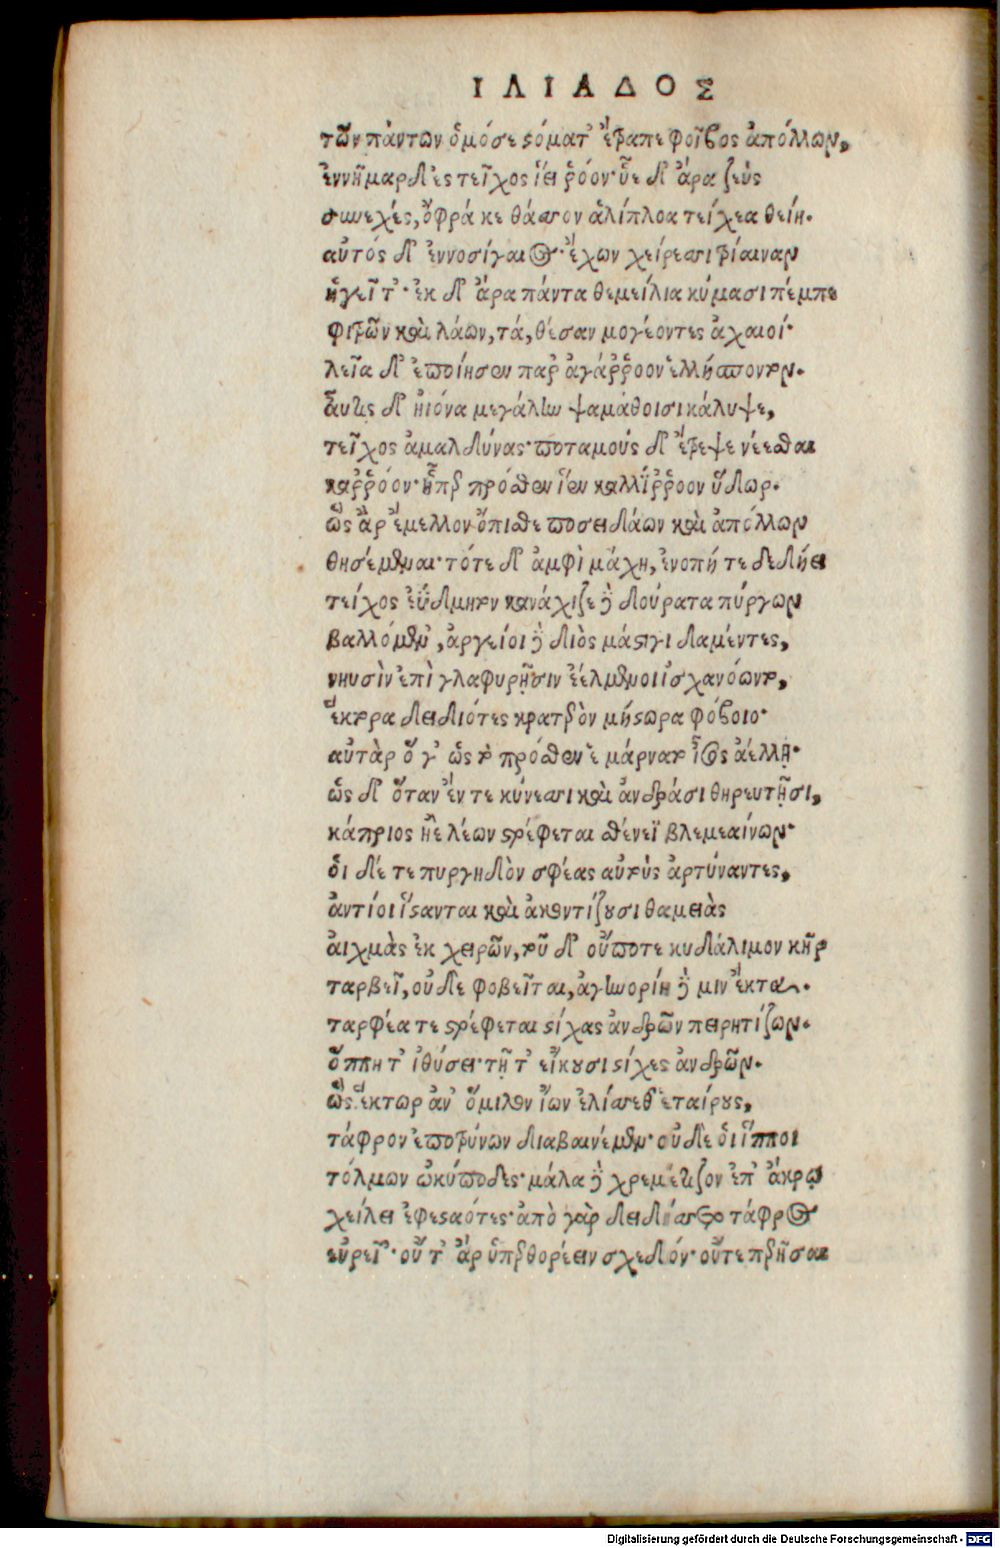 ΙΛΙΑΔΟΣ
τῶν πάντων ὁμόσε στόματ' ἔτραπε φοῖβος ἀπόλλων,
ἐννῆμαρ δ' ἐς τεῖχος ἵει ῥόον· ὗε δ' ἄρα ζεὺς
συνεχές, ὄφρά κε θᾶσσον ἁλίπλοα τείχεα θείη.
αὐτός δ' ἐννοσίγαιος ἔχων χείρεσσι τρίαιναν
ἡγεῖτ'· ἐκ δ' ἄρα πάντα θεμείλια κύμασι πέμπε
φιτρῶν καὶ λάων, τά, θέσαν μογέοντες ἀχαιοί·
λεῖα δ' ἐποίησεν παρ' ἀγάῤῥοον ἑλλήσποντον.
αὖτις δ' ἠϊόνα μεγάλην ψαμάθοισι κάλυψε,
τεῖχος ἀμαλδύνας· ποταμούς δ' ἔτρεψε νέεσθαι
καῤῥόον· ᾗπερ πρόσθεν ἵεν καλλίῤῥοον ὕδωρ.
ὣς ἄρ' ἔμελλον ὄπισθε ποσειδάων καὶ ἀπόλλων
θησέμεναι· τότε δ' ἀμφὶ μάχη, ἐνοπή τε δεδήει
τείχος ἐΰδμητον κανάχιζε δὲ δούρατα πύργων
βαλλόμεν', ἀργείοι δὲ διὸς μάστιγι δαμέντες,
νηυσὶν ἐπὶ γλαφυρῇσιν ἐελμένοι ἰσχανόωντο,
ἕκτορα δειδιότες κρατερὸν μήστωρα φόβοιο·
αὐτὰρ ὅ γ' ὡς τὸ πρόσθεν ἐμάρνατο ἶσος ἀέλλῃ·
ὡς δ' ὅταν ἔν τε κύνεσσι καὶ ἀνδράσι θηρευτῇσι,
κάπριος ἠὲ λέων στρέφεται σθένεϊ βλεμεαίνων·
ὁι δέ τε πυργηδὸν σφέας αὐτοὺς ἀρτύναντες,
ἀντίοι ἵστανται καὶ ἀκοντίζουσι θαμειὰς
ἀιχμὰς ἐκ χειρῶν, τοῦ δ' οὔποτε κυδάλιμον κῆρ
ταρβεῖ, οὐδὲ φοβεῖται, ἀγηνορίη δέ μιν ἔκτα.
ταρφέα τε στρέφεται στίχας ἀνδρῶν πειρητίζων.
ὅππη τ' ἰθύσει· τῇ τ' εἴκουσι στίχες ἀνδρῶν.
ὣς ἕκτωρ ἀν' ὅμιλον ἰὼν ἐλίσσεθ' ἑταίρους,
τάφρον ἐποτρύνων διαβαινέμεν· οὐδὲ ὁι ἵπποι
τόλμων ὠκύποδες· μάλα δὲ χρεμέτιζον ἐπ' ἄκρῳ
χείλει ἐφεσταότες· ἀπὸ γὰρ δειδίσσετο τάφρος
εὐρεῖ'· οὔτ' ἄρ ὑπερθορέειν σχεδόν· οὔτε περῆσαι
Digitalisierung gefördert durch die Deutsche Forschungsgemeinschaft - DFG